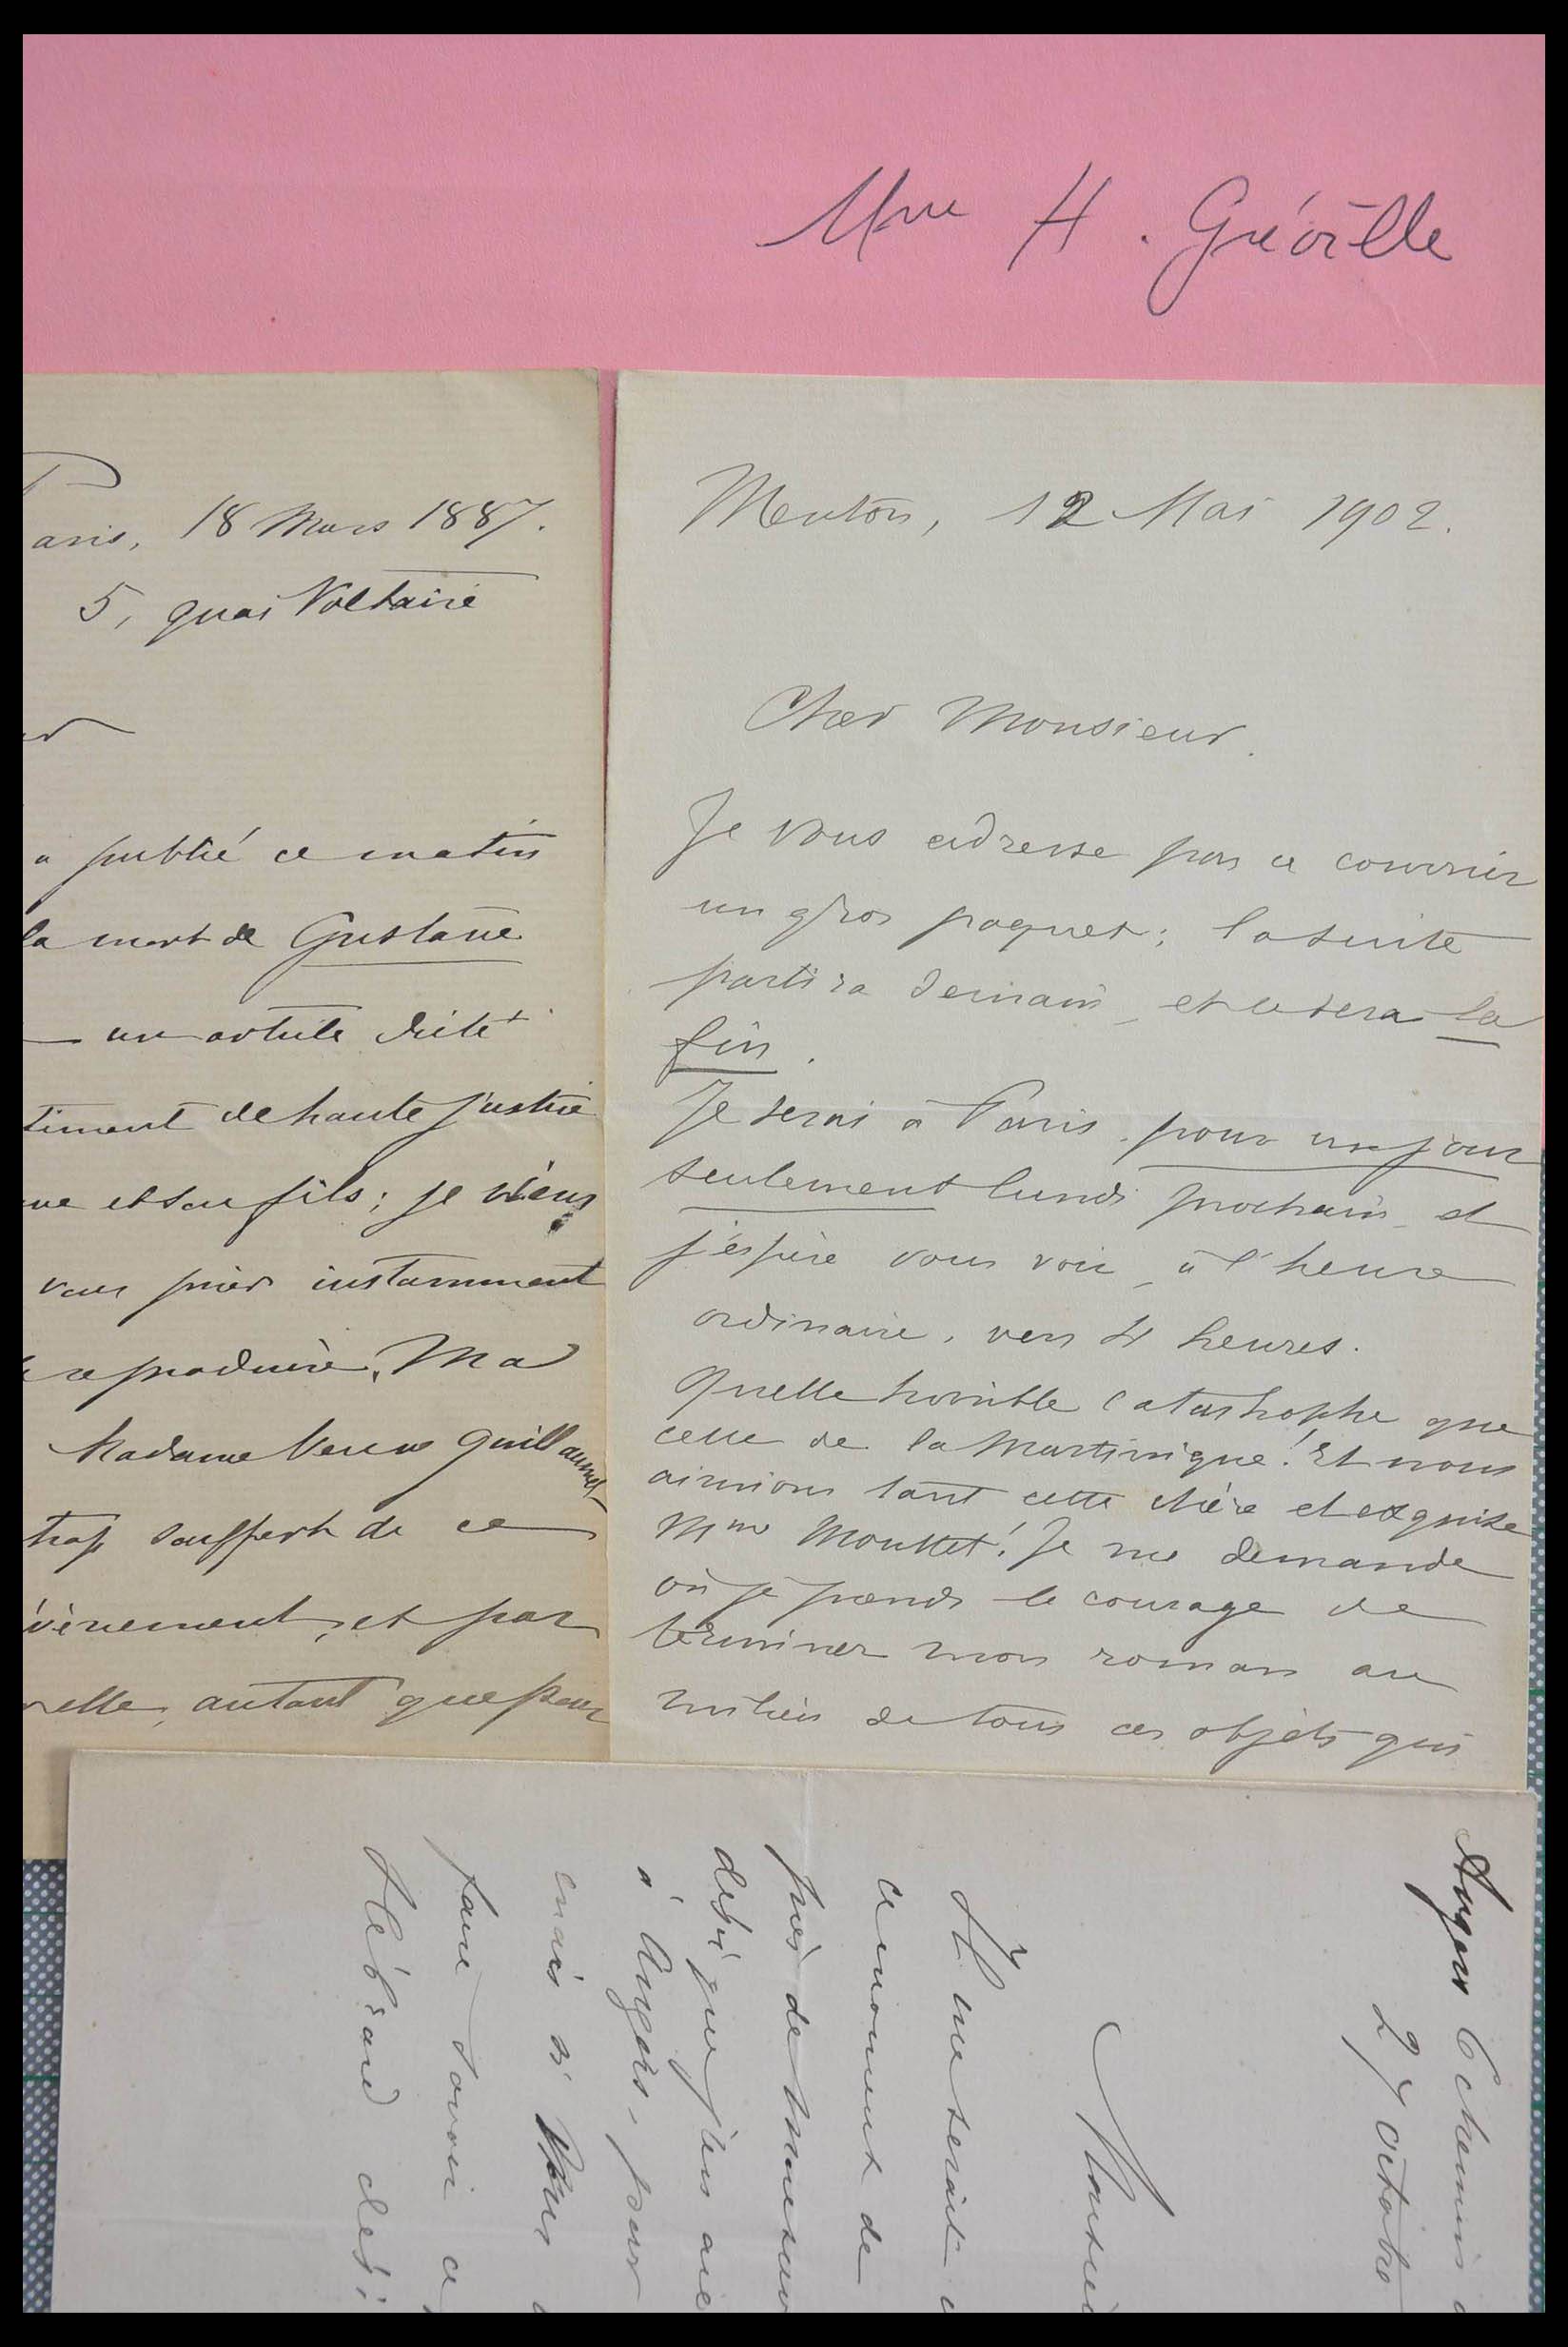 Mme H. Gréville
Paris, 18 Mars 1887.
5, quai Voltaire
a publié ce matin
la mort de Gustave
un article dicté
timent de haute justice
ve et son fils ; je viens
vous prier instamment
reproduire. Ma
Madame Veuve Guillaumet
trop souffert de ce
évènement, et par
elle, autant que pour
Menton, 12 Mai 1902.
Cher Monsieur.
Je vous adresse par ce courrier
un gros paquet ; la suite
partira demain, et ce sera la
fin.
Je serai à Paris, pour un jour
seulement lundi prochain et
j'espère vous voir, à l'heure
ordinaire, vers 4 heures.
Quelle horrible catastrophe que
celle de la Martinique ! Et nous
aimions tant cette chère et exquise
Mme Mouttet ! Je me demande
où je prends le courage de
terminer mon roman au
milieu de tous ces objets qui
Angers 6 Chemin
27 octobre
Monsieu
Il me serait
ce moment de
près de
désir que j'en
à Angers, pour
mais si vous
faire savoir ce
Hébrard